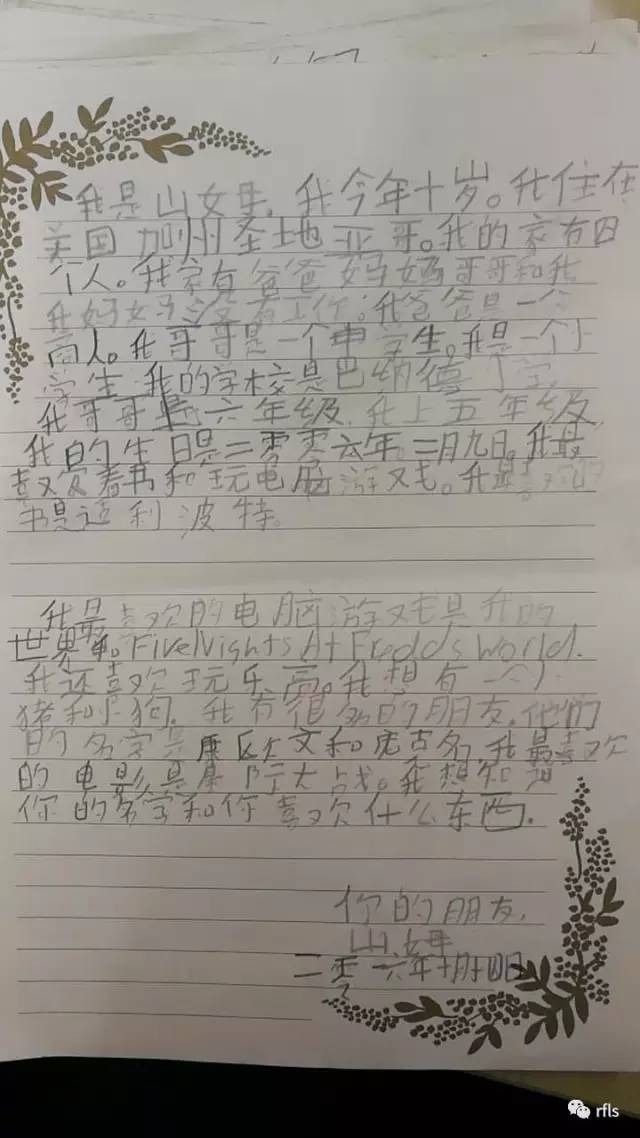 我是山姆，我今年十岁。我住在
美国加州圣地亚哥。我的家有四
个人。我家有爸爸妈妈哥哥和我
我妈妈没有工作；我爸爸是一个
商人。我哥哥是一个中学生。我是一个小
学生，我的学校是巴纳德小学，
我哥哥是六年级，我上五年级，
我的生日是二零零六年。二月九日。我最
喜欢看书和玩电脑游戏。我最喜欢的
书是
利波特。
我最喜欢的电脑游戏是我的
世界 Five Nights At Fredds World.
我还喜欢玩乐高。我想有一个小
猪和小狗，我有很多的朋友，他们
的名字是
文和
我最喜欢
的电影是星际大战。我想知道
你的名字和你喜欢什么东西.
你的朋友，
山姆
二零一六年十月十四日
rfls